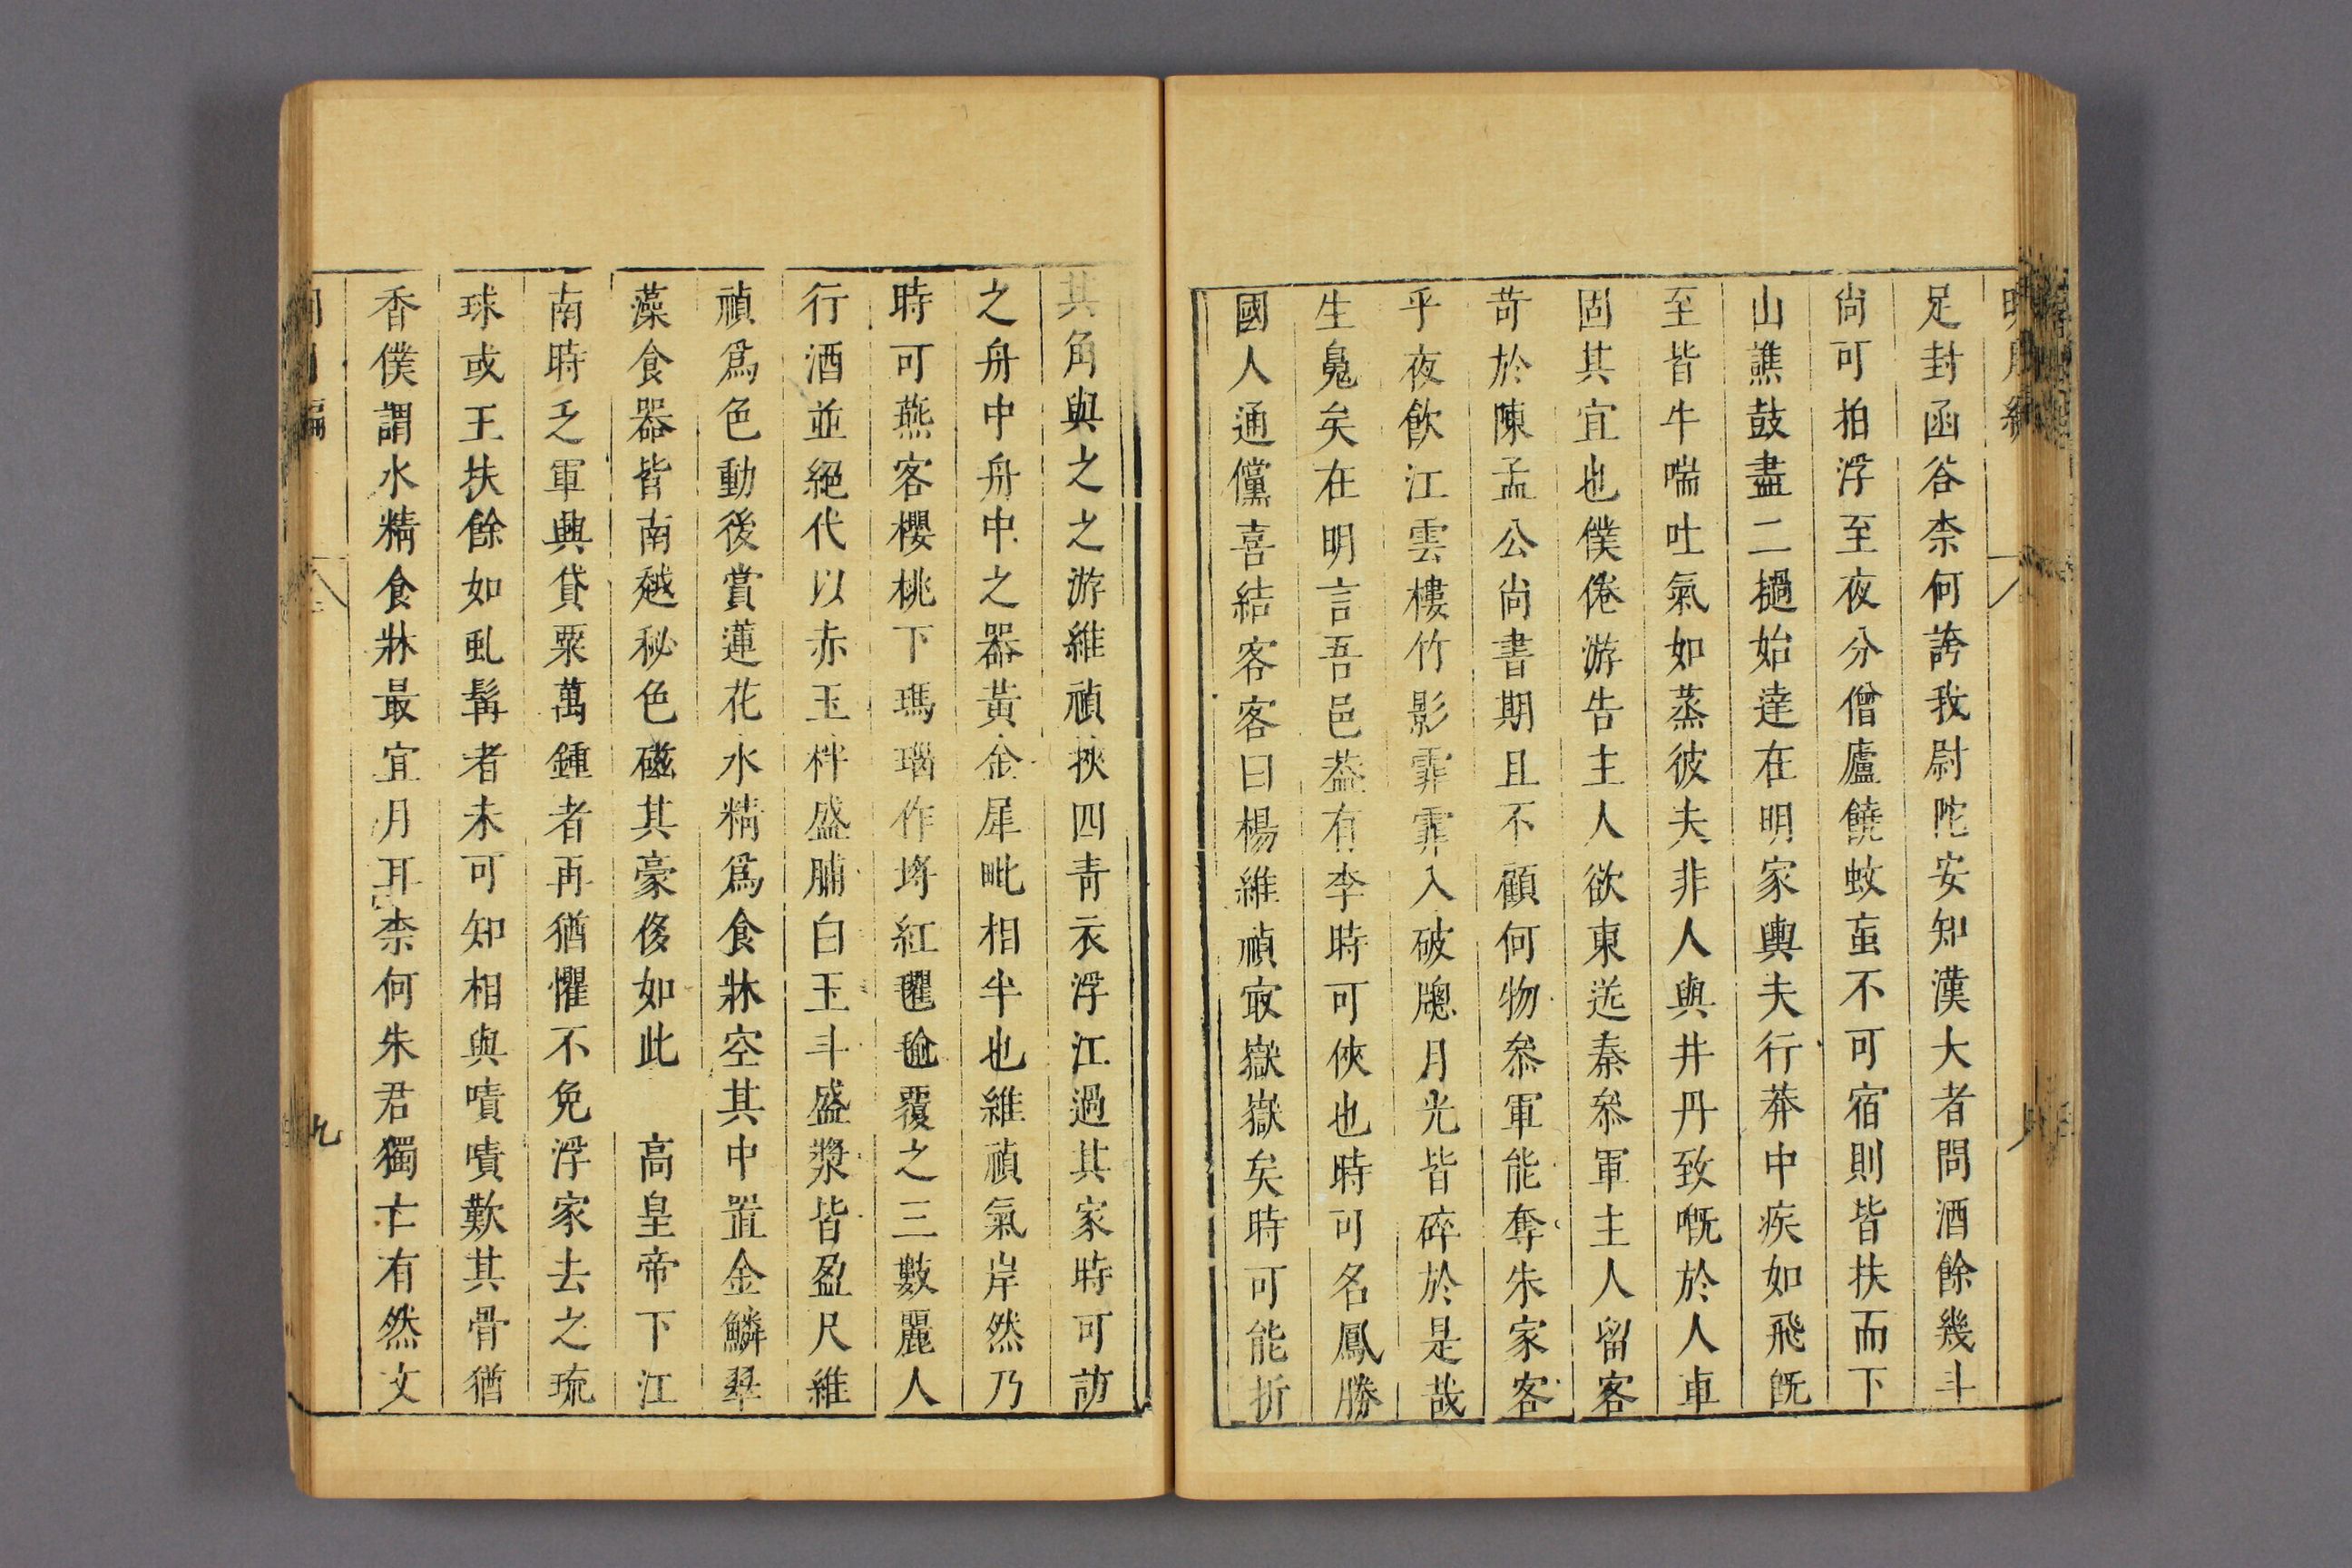 足封函谷柰何誇我尉陀安知漢大者問酒餘幾斗
尙可拍浮至夜分僧廬饒蚊䖟不可宿則皆扶而下
山譙鼓盡二檛始達在明家輿夫行莽中疾如飛旣
至皆牛喘吐氣如蒸彼夫非人與井丹致嘅於人車
固其宜也僕倦游告主人欲東送秦叅軍主人留客
苛於陳孟公尙書期且不顧何物叅軍能奪朱家客
乎夜飮江雲樓竹影霏霏入破牕月光皆碎於是哉
生鬼矣在明言吾邑葢有李時可俠也時可名鳳勝
國人通儻喜結客客曰楊維禎㝡嶽嶽矣時可能折
其角與之之游維禎挾四靑衣浮江過其家時可訪
之舟中舟中之器黃金犀毗相半也維禎氣岸然乃
時可燕客櫻桃下瑪瑙作埓紅氍毹覆之三數麗人
行酒並絕代以赤玉柈盛脯白玉斗盛漿皆盈尺維
禎爲色動後賞蓮花水精爲食牀空其中置金鱗翠
藻食器皆南越秘色磁其豪侈如此　高皇帝下江
南時乏軍興貸粟萬鍾者再猶懼不免浮家去之琉
球或王扶餘如虬髯者未可知相與嘖嘖歎其骨猶
香僕謂水精食牀最宜月耳柰何朱君獨亡有然文
九